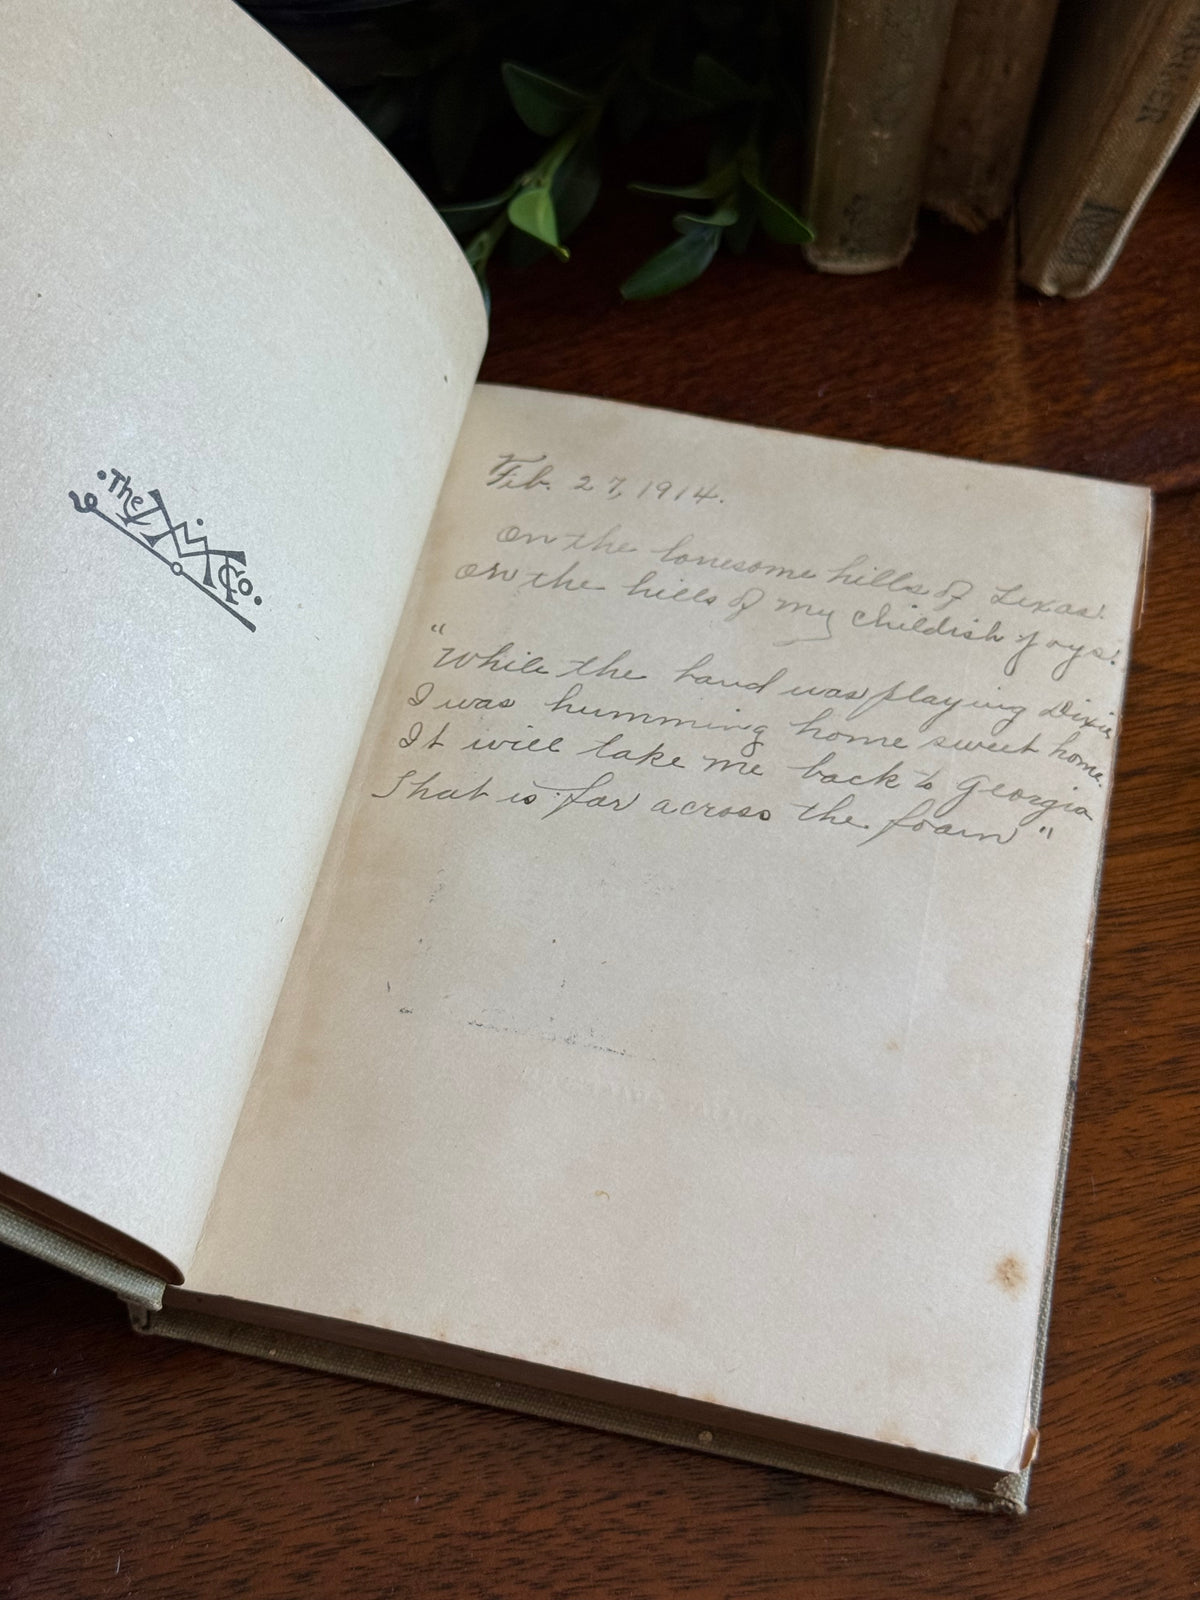 The M Co.
Feb. 27, 1914.
on the lonesome hills of Texas!
on the hills of my childish joys!
"While the band was playing Dixie,
I was humming home sweet home.
It will take me back to Georgia
That is far across the foam"